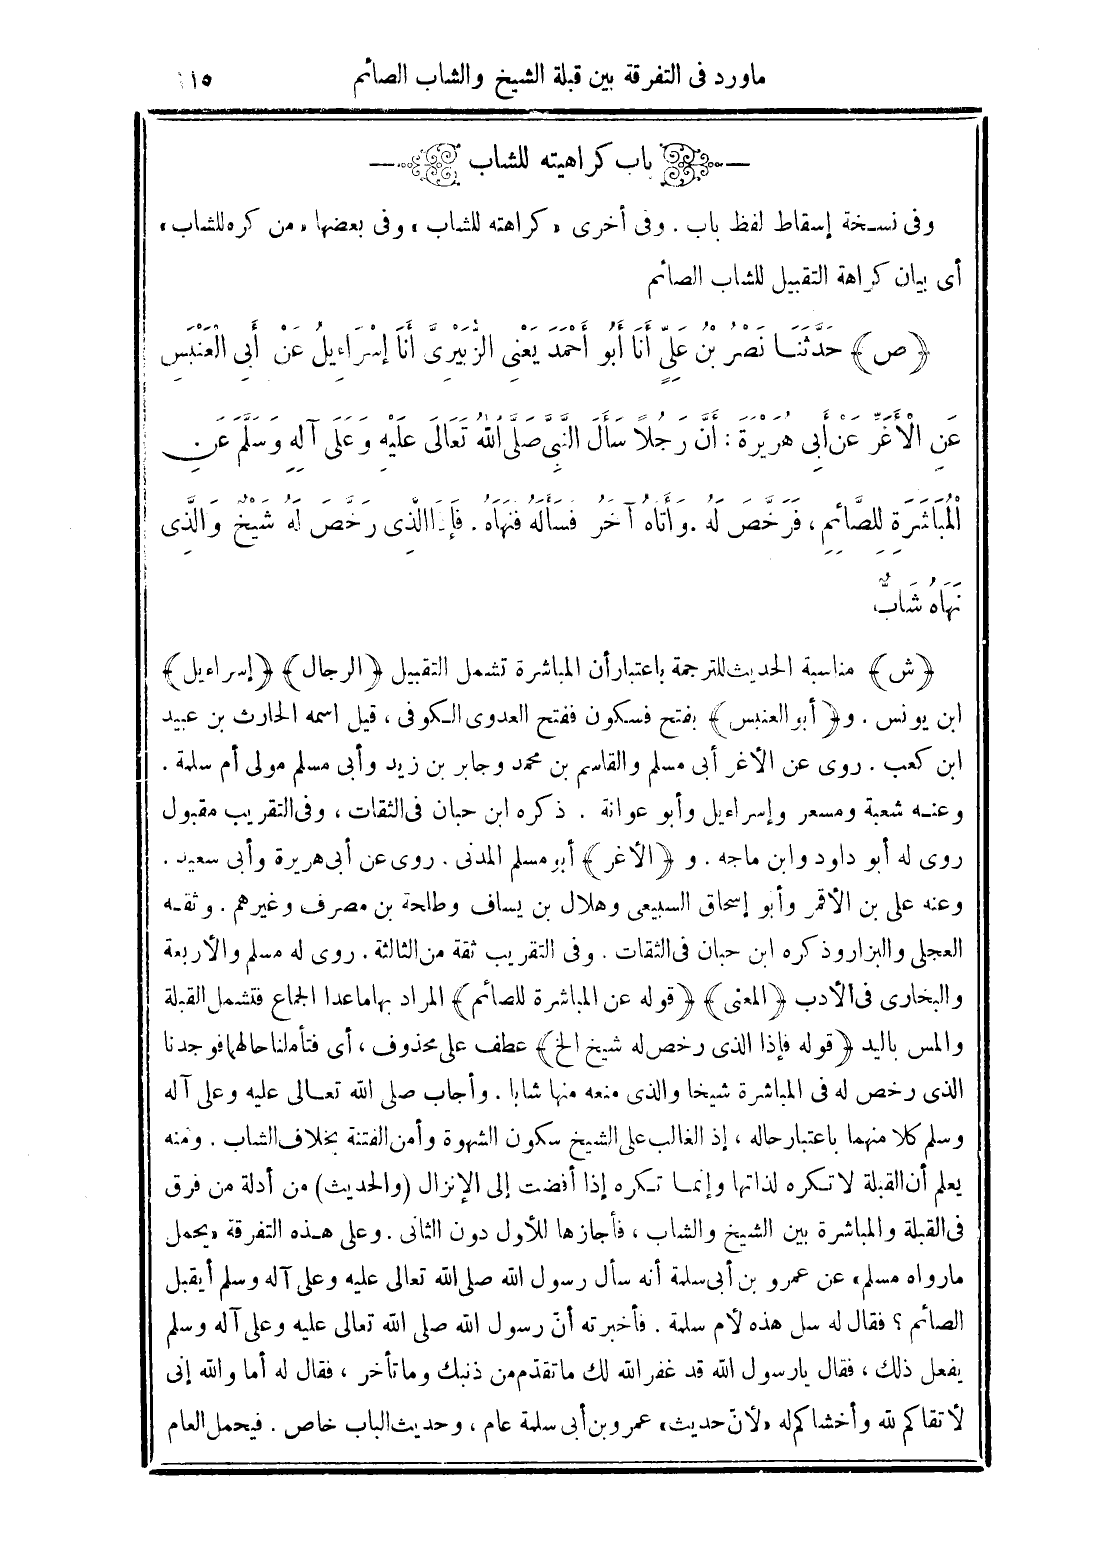 ماورد فى التفرقة بين قبلة الشيخ والشاب الصائم ١١٥
باب كراهيته للشاب
وفى نسخة إسقاط لفظ باب . وفى أخرى «كراهته للشاب» وفى بعضها «من كره للشاب»
أى بيان كراهة التقبيل للشاب الصائم
﴿ص﴾ حَدَّثَنَا نَصْرُ بْنُ عَلِىٍّ أَنَا أَبُو أَحْمَدَ يَعْنِى الزُّبَيْرِىَّ أَنَا إِسْرَاءِيلُ عَنْ أَبِى الْعَنْبَسِ
عَنِ الْأَغَرِّ عَنْ أَبِى هُرَيْرَةَ : أَنَّ رَجُلًا سَأَلَ النَّبِىَّ صَلَّى اللهُ تَعَالَى عَلَيْهِ وَعَلَى آلِهِ وَسَلَّمَ عَنِ
الْمُبَاشَرَةِ لِلصَّائِمِ ، فَرَخَّصَ لَهُ . وَأَتَاهُ آخَرُ فَسَأَلَهُ فَنَهَاهُ . فَإِذَا الَّذِى رَخَّصَ لَهُ شَيْخٌ وَالَّذِى
نَهَاهُ شَابٌّ
﴿ش﴾ مناسبة الحديث للترجمة باعتبار أن المباشرة تشمل التقبيل ﴿الرجال﴾ ﴿إسراءيل﴾
ابن يونس . و﴿أبو العنبس﴾ بفتح فسكون ففتح العدوى الكوفى ، قيل اسمه الحارث بن عبيد
ابن كعب . روى عن الأغر أبى مسلم والقاسم بن محمد وجابر بن زيد وأبى مسلم مولى أم سلمة .
وعنه شعبة ومسعر وإسراءيل وأبو عوانة . ذكره ابن حبان فى الثقات ، وفى التقريب مقبول
روى له أبو داود وابن ماجه . و ﴿الأغر﴾ أبو مسلم المدنى . روى عن أبى هريرة وأبى سعيد .
وعنه على بن الأقمر وأبو إسحاق السبيعى وهلال بن يساف وطلحة بن مصرف وغيرهم . وثقه
العجلى والبزار وذكره ابن حبان فى الثقات . وفى التقريب ثقة من الثالثة . روى له مسلم والأربعة
والبخارى فى الأدب ﴿المعنى﴾ ﴿قوله عن المباشرة للصائم﴾ المراد بها ماعدا الجماع فتشمل القبلة
والمس باليد ﴿قوله فإذا الذى رخص له شيخ الخ﴾ عطف على محذوف ، أى فتأملنا حالهما فوجدنا
الذى رخص له فى المباشرة شيخا والذى منعه منها شابا . وأجاب صلى الله تعالى عليه وعلى آله
وسلم كلا منهما باعتبار حاله ، إذ الغالب على الشيخ سكون الشهوة وأمن الفتنة بخلاف الشاب . ومنه
يعلم أن القبلة لا تكره لذاتها وإنما تكره إذا أفضت إلى الإنزال (والحديث) من أدلة من فرق
فى القبلة والمباشرة بين الشيخ والشاب ، فأجازها للأول دون الثانى . وعلى هذه التفرقة «يحمل
مارواه مسلم» عن عمرو بن أبى سلمة أنه سأل رسول الله صلى الله تعالى عليه وعلى آله وسلم أيقبل
الصائم ؟ فقال له سل هذه لأم سلمة . فأخبرته أنّ رسول الله صلى الله تعالى عليه وعلى آله وسلم
يفعل ذلك ، فقال يارسول الله قد غفر الله لك ماتقدّم من ذنبك وماتأخر ، فقال له أما والله إنى
لأتقاكم لله وأخشاكم له «لأنّ حديث» عمرو بن أبى سلمة عام ، وحديث الباب خاص . فيحمل العام